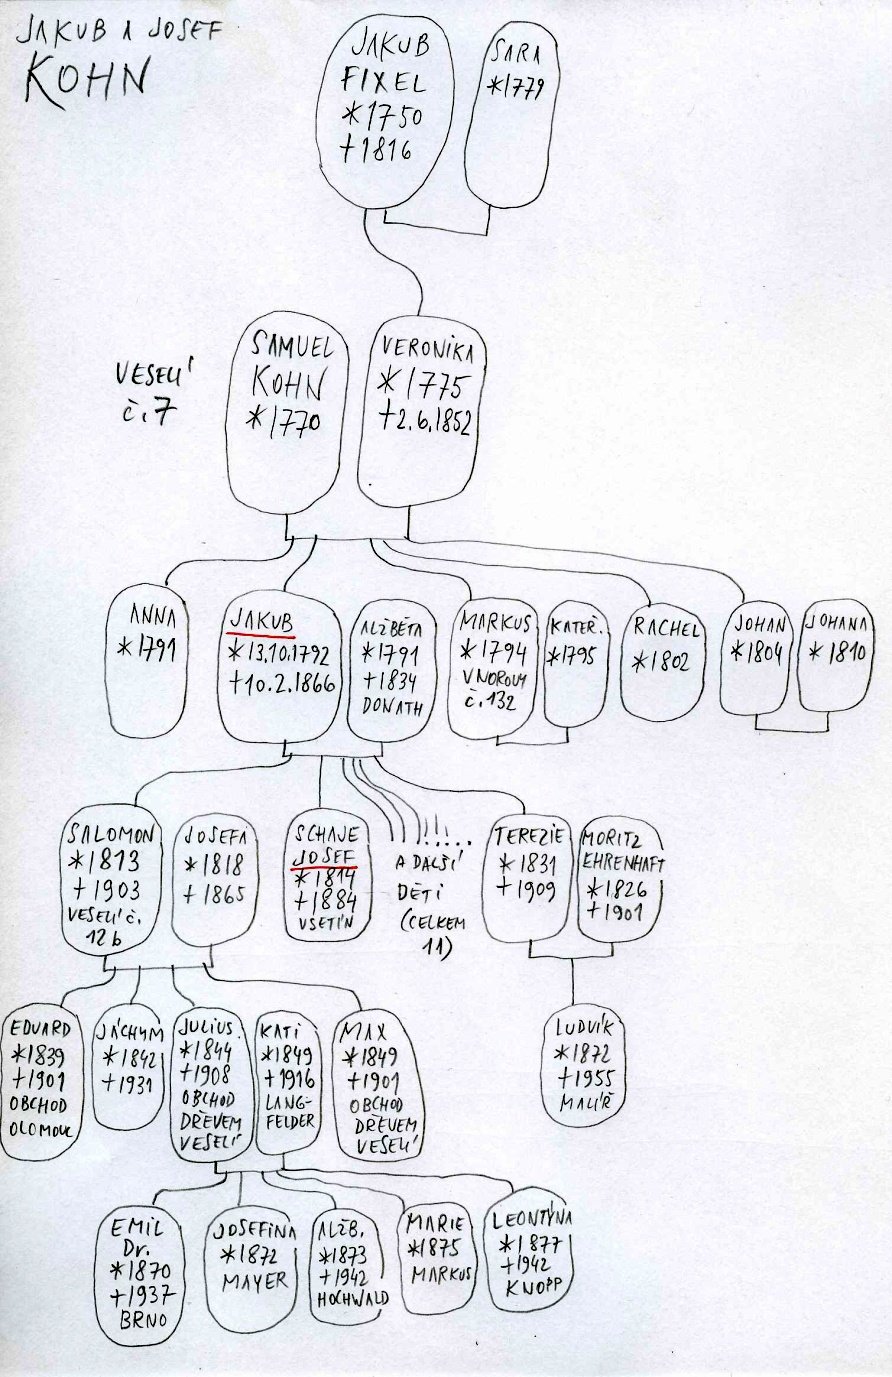 JAKUB A JOSEF
KOHN
JAKUB
FIXEL
*1750
+1816
SARA
*1779
VESELÍ
č.7
SAMUEL
KOHN
*1770
VERONIKA
*1775
+2.6.1852
ANNA
*1791
JAKUB
*13.10.1792
+10.2.1866
ALŽBĚTA
*1791
+1834
DONATH
MARKUS
*1794
VNOROVY
č.132
KATEŘ.
*1795
RACHEL
*1802
JOHAN
*1804
JOHANA
*1810
SALOMON
*1813
+1903
VESELÍ č.
12b
JOSEFA
*1818
+1865
SCHAJE
JOSEF
*1814
+1884
VSETÍN
A DALŠÍ
DĚTI
(CELKEM
11)
TEREZIE
*1831
+1909
MORITZ
EHRENHAFT
*1826
+1901
EDUARD
*1839
+1901
OBCHOD
OLOMOUC
JÁCHYM
*1842
+1931
JULIUS
*1844
+1908
OBCHOD
DŘEVEM
VESELÍ
KATI
*1849
+1916
LANG-
FELDER
MAX
*1849
+1901
OBCHOD
DŘEVEM
VESELÍ
LUDVÍK
*1872
+1955
MALÍŘ
EMIL
Dr.
*1870
+1937
BRNO
JOSEFINA
*1872
MAYER
ALŽB.
*1873
+1942
HOCHWALD
MARIE
*1875
MARKUS
LEONTÝNA
*1877
+1942
KNOPP